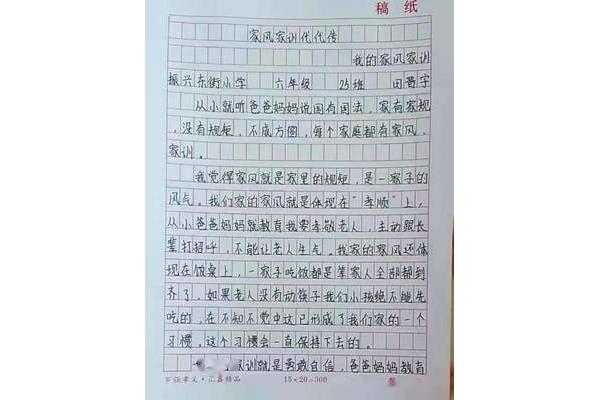 稿 纸
家风家训代代传
我的家风家训
振兴东街小学 六年级 25班 田晋宇
从小就听爸爸妈妈说国有国法，家有家规
，没有规矩，不成方圆，每个家庭都有家风、
家训。
我觉得家风就是家里的规矩，是一家子的
风气。我们家的家风就是体现在“孝顺”上，
从小爸爸妈妈就教育我要孝敬老人，主动跟长
辈打招呼，不能让老人生气。我家的家风还体
现在饭桌上，一家子吃饭都是等家人全部都到
齐了，如果老人没有动筷子我们小孩绝不能先
吃的，在不知不觉中这已形成了我们家的一个
习惯，这个习惯会一直保持下去的。
家训就是勇敢自信，爸爸妈妈教育
15×20=300